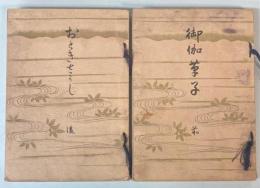 御伽草子
おとぎざうし
後